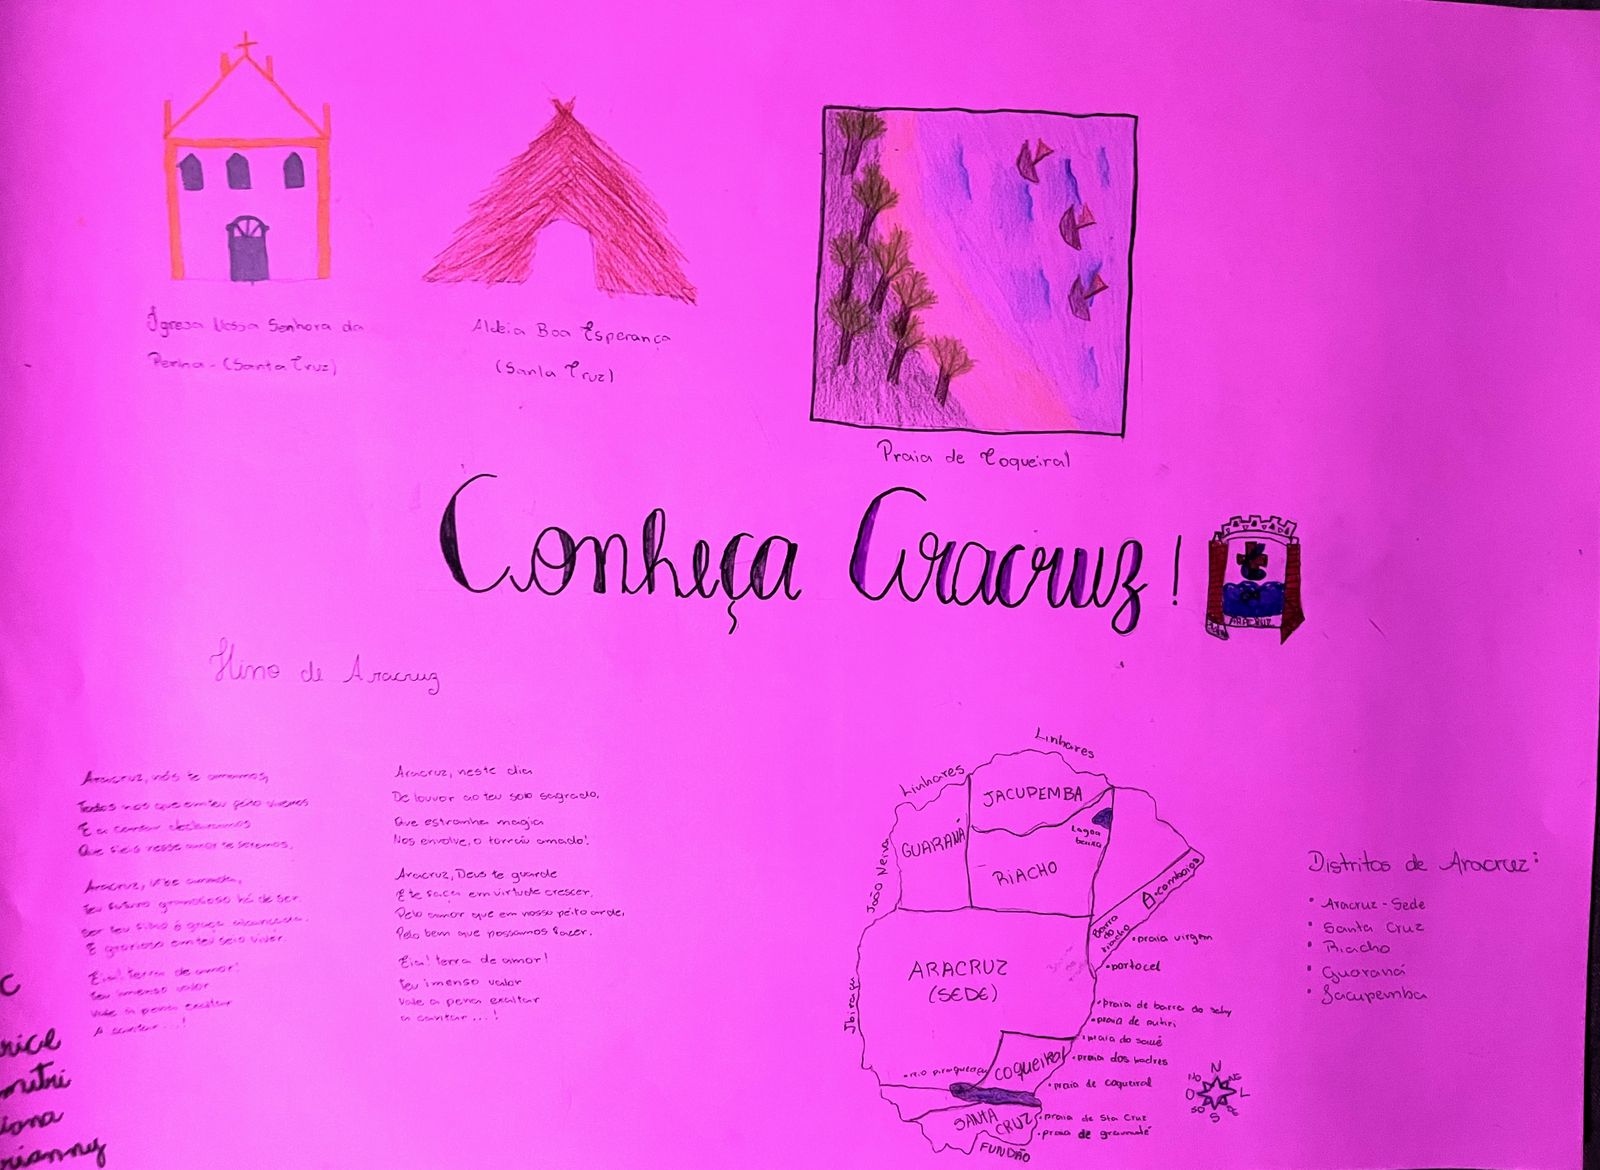 Igreja Nossa Senhora da
Penha - (Santa Cruz)
Aldeia Boa Esperança
(Santa Cruz)
Praia de Coqueiral
Conheça Aracruz!
ARACRUZ
Hino de Aracruz
Aracruz, nós te amamos,
Todos nos que em teu peito vivemos
E a cantar declaramos
Que fieis nesse amor te seremos.
Aracruz, urbe amada,
Teu futuro grandioso há de ser
Ser teu filho é graça alcançada.
E glorioso em teu seio viver.
Eia! terra de amor!
teu imenso valor
Vale a pena exaltar
A cantar...!
Aracruz, neste dia
De louvor ao teu solo sagrado,
Que estranha magia
Nos envolve, o torrão amado!
Aracruz, Deus te guarde
E te faça em virtude crescer,
Pelo amor que em nosso peito arde,
Pelo bem que possamos fazer.
Eia! terra de amor!
teu imenso valor
Vale a pena exaltar
a cantar...!
Linhares
Linhares
JACUPEMBA
GUARANÁ
Lagoa
RIACHO
João Neiva
comboios
Barra
do
riacho
praia virgem
portocel
ARACRUZ
(SEDE)
Ibiraçu
praia de barra do sahy
praia de putiri
praia do sauê
praia dos padres
COQUEIRAL
rio piraqueaçu
praia de coqueiral
SANTA
CRUZ
praia de Sta Cruz
praia de gramuté
FUNDÃO
Distritos de Aracruz:
• Aracruz-Sede
• Santa Cruz
• Riacho
• Guaraná
• Jacupemba
N
NO NE
O L
SO SE
S